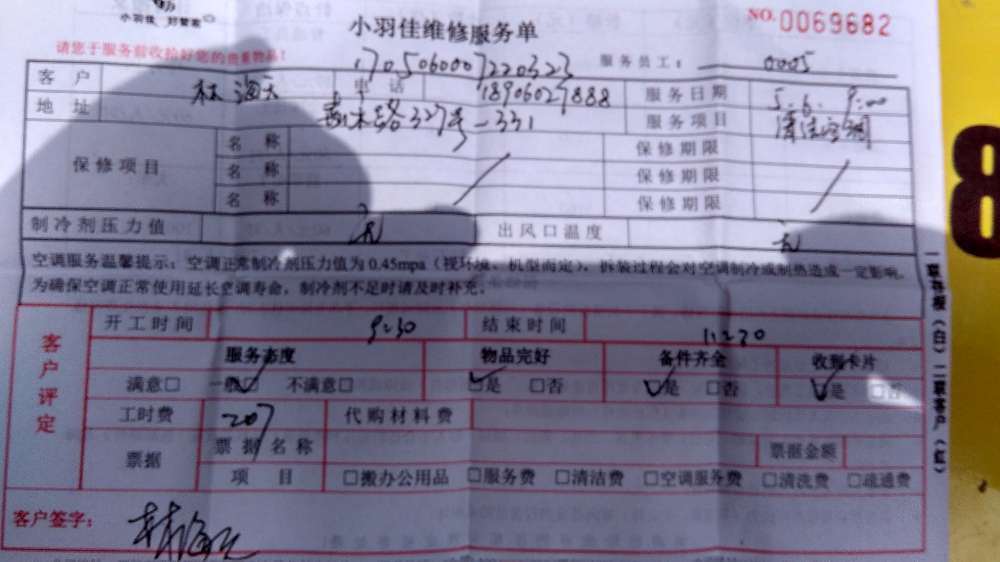 小羽佳 好管家
小羽佳维修服务单
NO.0069682
请您于服务前收拾好您的贵重物品!
1705060007220323
服务员工: 0005
客户 林海天 电话 18906027888 服务日期 5.6. 9:00
地址 327号-331 服务项目 清洁空调
保修项目 名称 保修期限
名称 保修期限
名称 保修期限
制冷剂压力值 无 出风口温度 无
空调服务温馨提示:空调正常制冷剂压力值为0.45mpa(视环境、机型而定),拆装过程会对空调制冷或制热造成一定影响,
为确保空调正常使用延长空调寿命,制冷剂不足时请及时补充。
客户评定
开工时间 9:30 结束时间 11:30
服务态度 物品完好 备件齐全 收到卡片
满意□ 一般□ 不满意□ □是 □否 □是 □否 □是 □否
工时费 207 代购材料费
票据 票据名称 票据金额
项目 □搬办公用品 □服务费 □清洁费 □空调服务费 □清洗费 □疏通费
客户签字: 林海天
一联存根(白)二联客户(红)
8